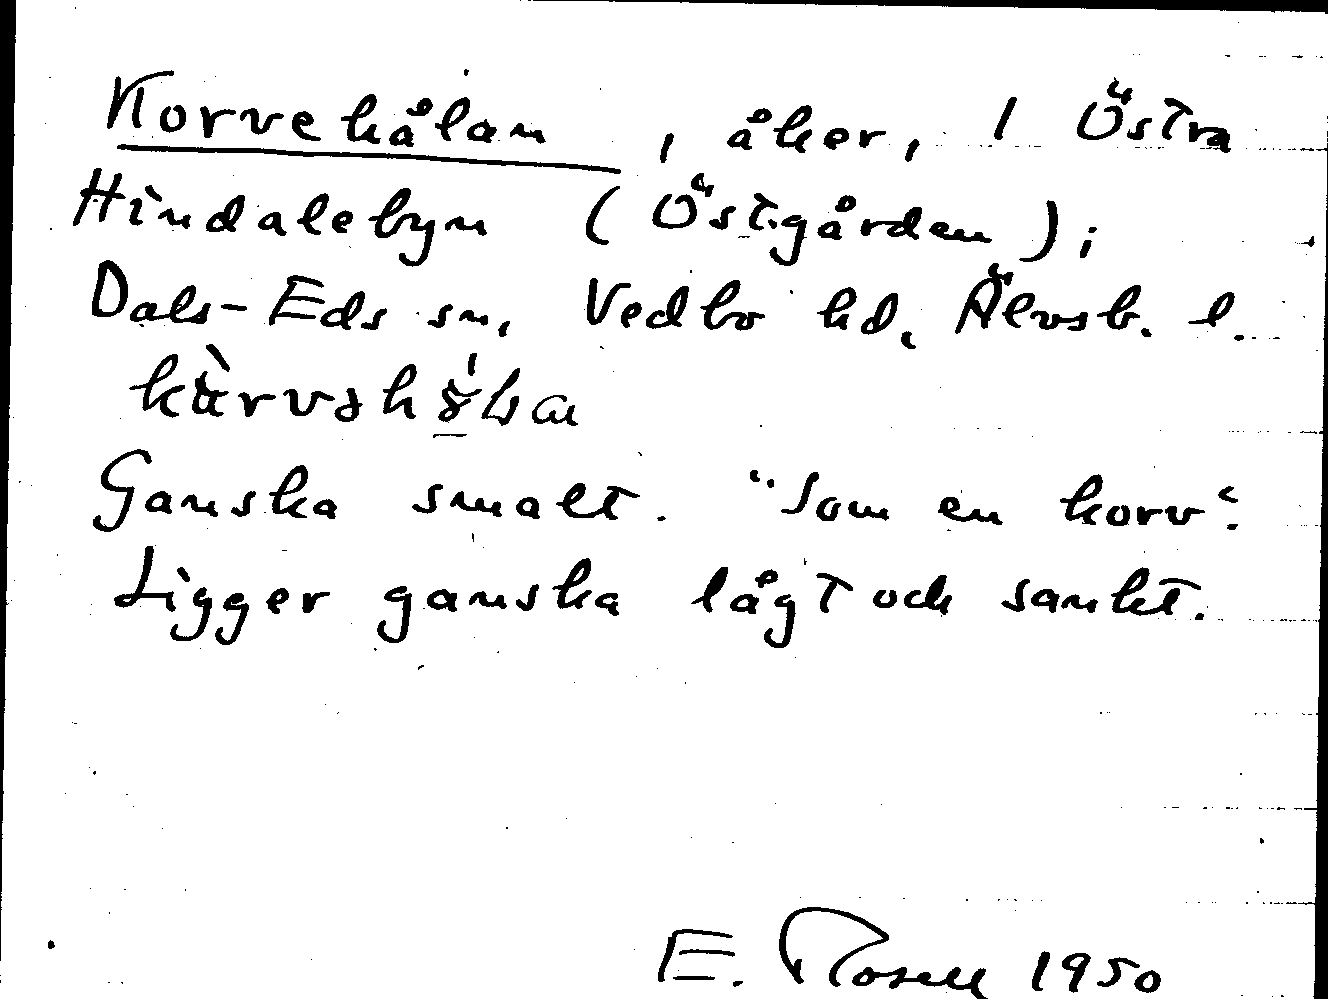 Korvehålan, åker, 1 Östra
Hindalebyn (Östgården);
Dals-Eds sn, Vedbo hd, Älvsb. l.
Ganska smalt. "Som en korv".
Ligger ganska lågt och sankt.
E. Rosell 1950